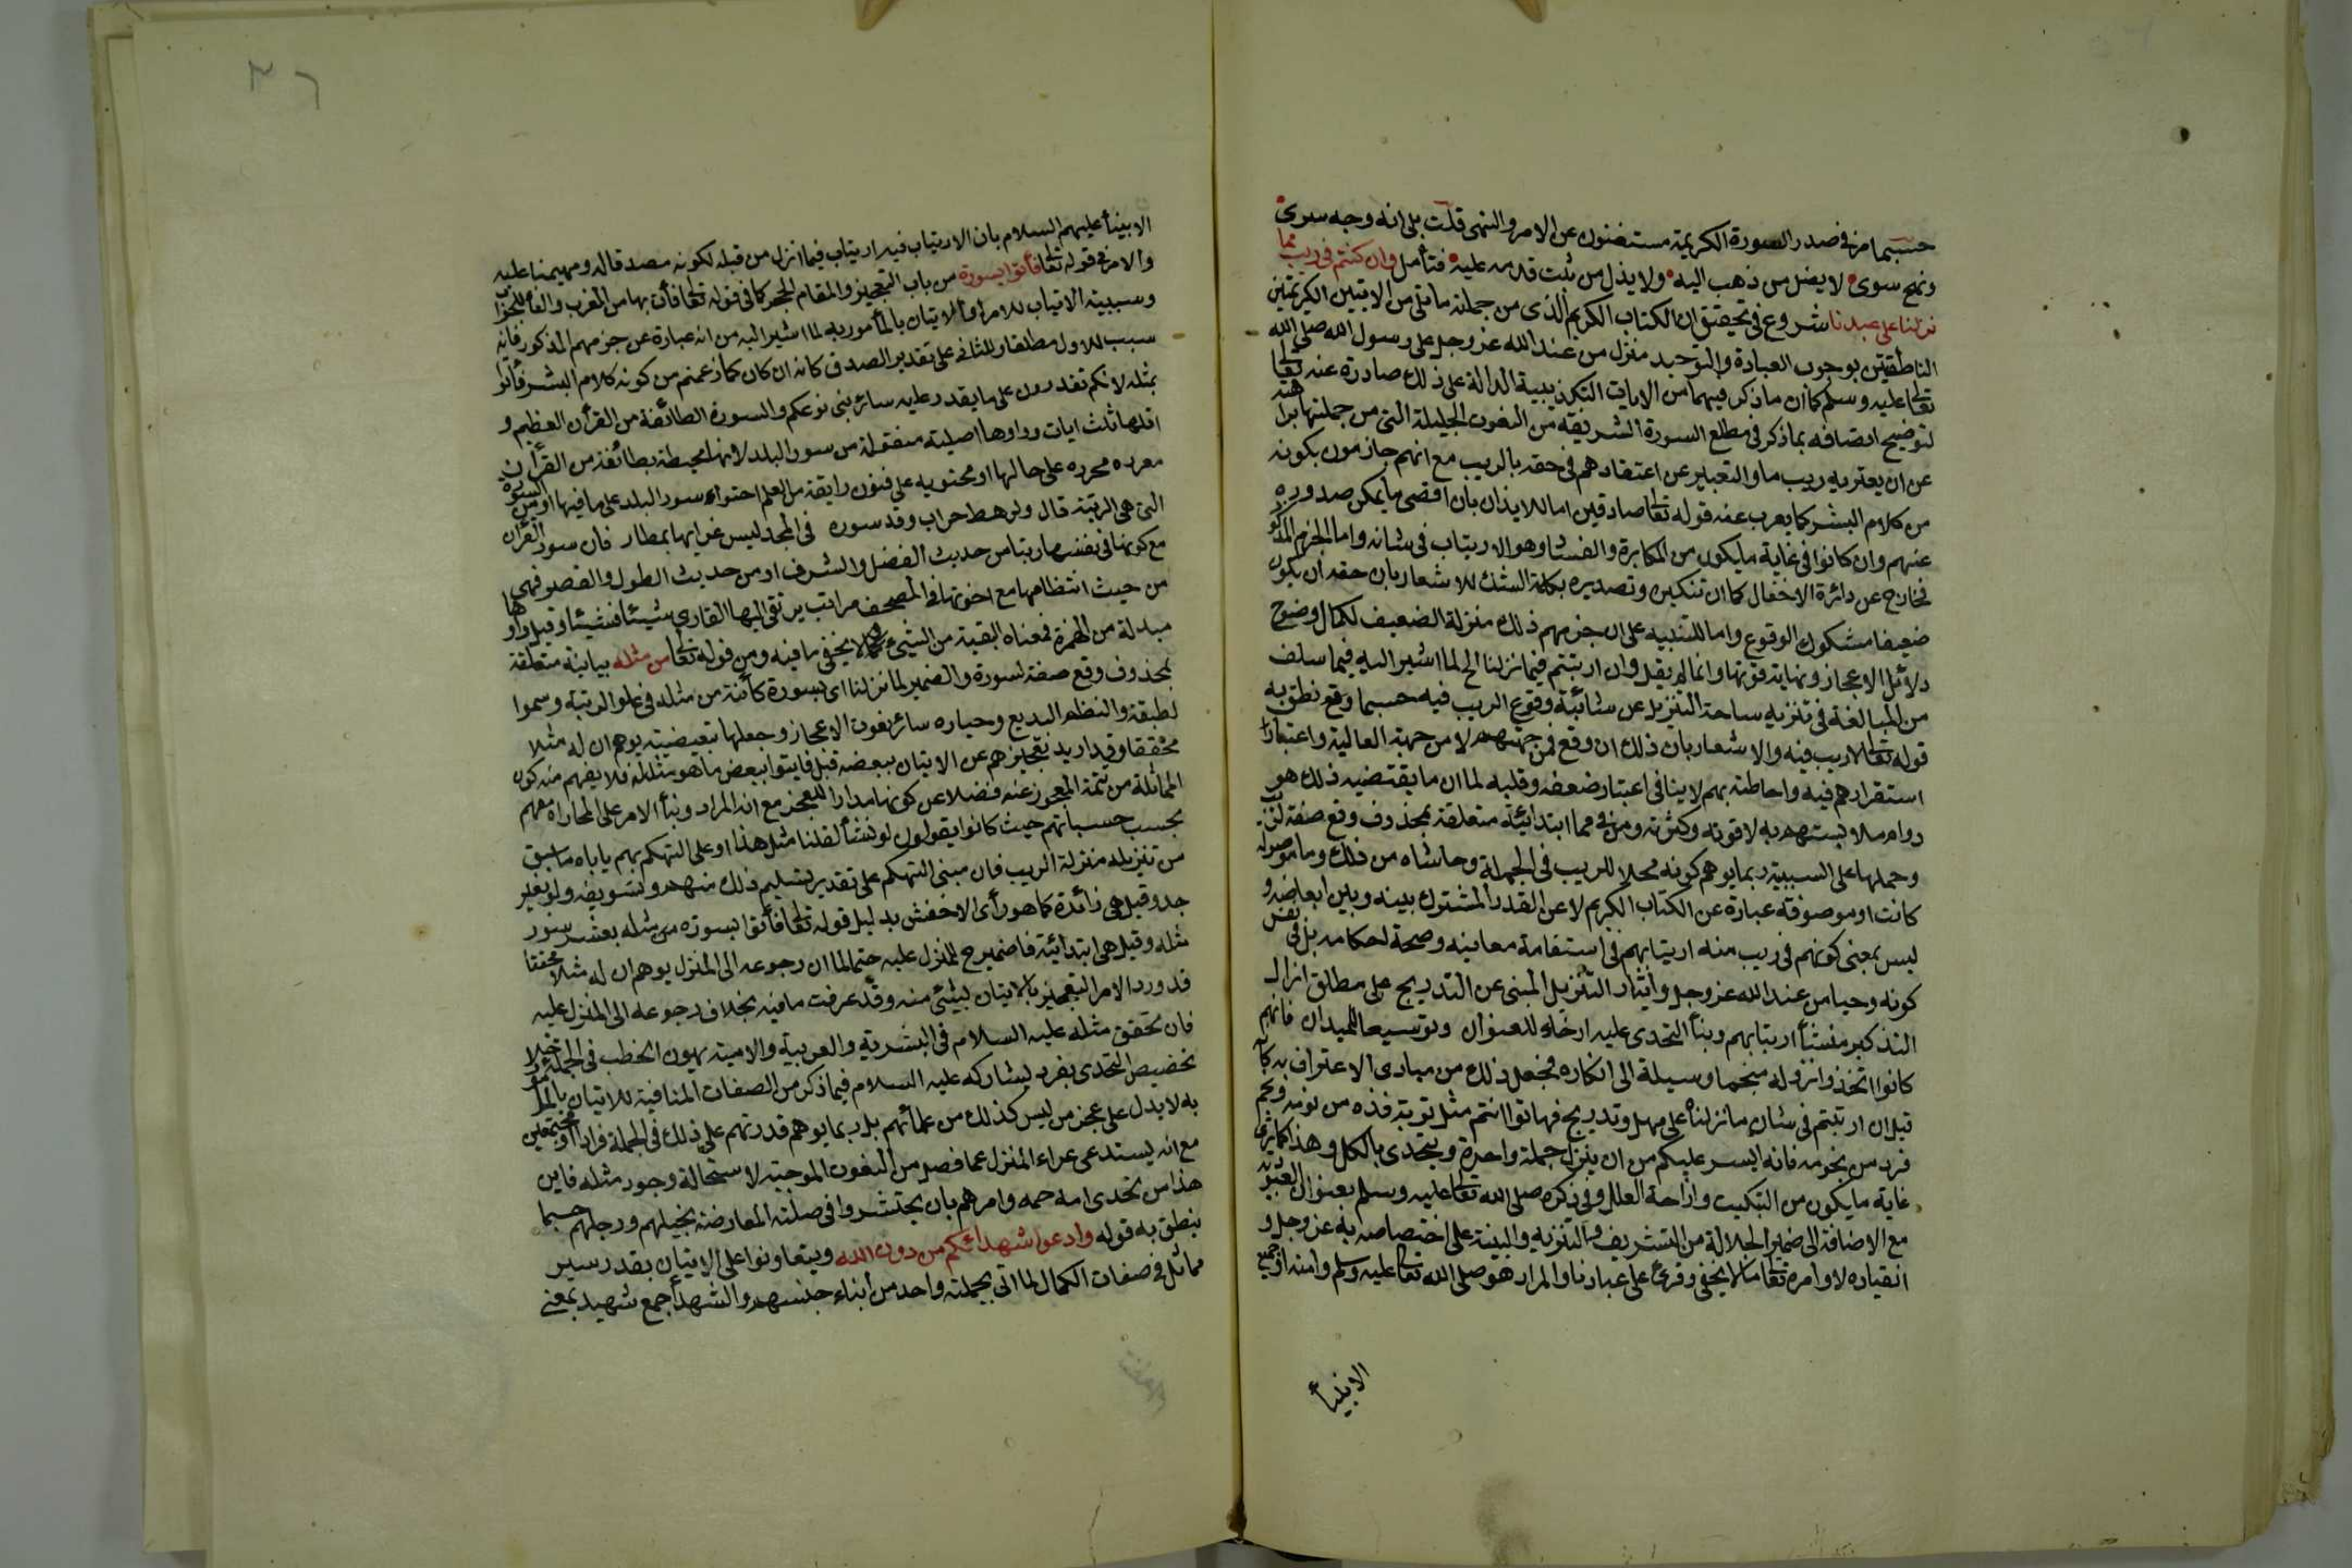 حسبما مر في صدر السورة الكريمة مستغنون عن الامر والنهى قلت بلى انه وجه سرى
ونهج سوى لا يضل من ذهب اليه ولا يذل من ثبت قدمه عليه فتأمل وان كنتم في ريب مما
نزلنا على عبدنا شروع في تحقيق ان الكتاب الكريم الذى من جملته ما تلى من الايتين الكريمتين
الناطقتين بوجوب العبادة والتوحيد منزل من عند الله عز وجل على رسول الله صلى الله
تعالى عليه وسلم كما ان ما ذكر فيهما من الايات التكوينية الدالة على ذلك صادرة عنه تعالى
لتوضيح اتصافه بما ذكر في مطلع السورة الشريفة من النعوت الجليلة التى من جملتها نزاهته
عن ان يعتريه ريب ما والتعبير عن اعتقادهم في حقه بالريب مع انهم جازمون بكونه
من كلام البشر كما يعرب عنه قوله تعالى صادقين اما للايذان بان اقصى ما يمكن صدوره
عنهم وان كانوا في غاية ما يكون من المكابرة والعناد هو الارتياب في شانه واما الجزم المذكور
فخارج عن دائرة الاحتمال كما ان تنكيره وتصديره بكلمة الشك للاشعار بان حقه ان يكون
ضعيفا مشكوك الوقوع واما للتنبيه على ان جزمهم ذلك بمنزلة الضعيف لكمال وضوح
دلائل الاعجاز ونهاية قوتها وانما لم يقل وان ارتبتم فيما نزلنا الخ لما اشير اليه فيما سلف
من المبالغة في تنزيه ساحة التنزيل عن شائبة وقوع الريب فيه حسبما وقع نطق به
قوله تعالى لا ريب فيه والاشعار بان ذلك ان وقع فمن جهتهم لا من جهة العالية واعتبار
استقرارهم فيه واحاطته بهم لا ينافى اعتبار ضعفه وقلته لما ان ما يقتضيه ذلك هو
دوام ملابستهم به لا قوته وكثرته ومن في مما ابتدائية متعلقة بمحذوف وقع صفة لريب
وحملها على السببية ربما يوهم كونه محلا للريب في الجملة وحاشاه من ذلك وما موصولة
كانت او موصوفة عبارة عن الكتاب الكريم لا عن القدر المشترك بينه وبين ابعاضه و
ليس بمعنى كونهم في ريب منه ارتيابهم في استقامة معانيه وصحة احكامه بل في نفس
كونه وحيا من عند الله عز وجل وايثار التنزيل المبنى عن التدريج على مطلق انزال
التذكير منشأ ارتيابهم وبنأ التحدى عليه ارخاء للعنوان وتوسيعا للميدان فانهم
كانوا اتخذوا نزوله منجما وسيلة الى انكاره فجعل ذلك من مبادى الاعتراف به كانه
قيل ان ارتبتم في شان ما نزلناه على مهل وتدريج فهاتوا انتم مثل نوبة فذه من نوبه ونجم
فرد من نجومه فانه ايسر عليكم من ان ينزل جملة واحدة ويتحدى بالكل وهذا كما ترى
غاية ما يكون من التبكيت وازاحة العلل وفي ذكره صلى الله تعالى عليه وسلم بعنوان العبودية
مع الاضافة الى ضمير الجلالة من التشريف والتنويه والبينة على اختصاصه به عز وجل و
انقياده لاوامره تعالى ما لا يخفى وقرئ على عبادنا والمراد هو صلى الله تعالى عليه وسلم وامته او جميع
الانبيأ
٣٦
الانبيأ عليهم السلام بان الارتياب فيه ارتياب فيما انزل من قبله لكونه مصدقا له ومهيمنا عليه
والامر في قوله تعالى فأتوا بسورة من باب التعجيز والقام الحجر كما في قوله تعالى فأت بها من المغرب والفاء للجواب
وسببية الارتياب للامر او الاتيان بالمأمور به لما اشير اليه من انه عبارة عن جزمهم المذكور فانه
سبب للاول مطلقا وللثانى على تقدير الصدق كانه ان كان كما زعمتم من كونه كلام البشر فأتوا
بمثله لانكم تقدرون على ما يقدر عليه سائر بنى نوعكم والسورة الطائفة من القرأن العظيم و
اقلها ثلث ايات وواوها اصلية منقولة من سور البلد لانها محيطة بطائفة من القرأن
مفرده محرزه على حالها او محتويه على فنون رايقة من العلم احتواء سور البلد على ما فيها او من السورة
التى هى الرتبة قال ولرهط حراب وقد سوره في المجد ليس غرابها بمطار فان سور القرأن
مع كونها في نفسها رتبا من حديث الفضل والشرف او من حديث الطول والقصر فهى
من حيث انتظامها مع اخوتها في المصحف مراتب يرتقى اليها القارى شيئا فشيئا وقيل واوها
مبدلة من الهمزة فمعناه البقية من الشيء ولا يخفى ما فيه ومن قوله تعالى من مثله بيانية متعلقة
بمحذوف وقع صفة لسورة والضمير لما نزلنا اى بسورة كائنة من مثله في علو الرتبة وسموا
لطبقة والنظم البديع وحيازه سائر نعوت الاعجاز وجعلها تبعيضية يوهم ان له مثلا
محققا وقد اريد تعجيزهم عن الاتيان ببعضه قيل فايتوا ببعض ما هو مثل له فلا يفهم منه كون
المماثلة من تتمة المعجوز عنه فضلا عن كونها مدارا للعجز مع انه المراد وبنأ الامر على المجاراة معهم
بحسب حسبانهم حيث كانوا يقولون لو نشأ لقلنا مثل هذا او على التهكم بهم ياباه ما سبق
من تنزيله منزلة الريب فان مبنى التهكم على تقدير تسليم ذلك منهم وتسويغه ولو بغير
جد وقيل هى زائدة كما هو رأى الاخفش بدليل قوله تعالى فأتوا بسورة من مثله بعشر سور
مثله وقيل هى ابتدائية فالضمير ح للمنزل عليه حتما لما ان رجوعه الى المنزل يوهم ان له مثلا محققا
قد ورد الامر التعجيز بالاتيان بشيئ منه وقد عرفت ما فيه بخلاف رجوعه الى المنزل عليه
فان تحقق مثله عليه السلام في البشرية والعربية والامية يهون الخطب في الجملة خلا
تخصيص التحدى بفرد يشاركه عليه السلام فيما ذكر من الصفات المنافية للاتيان بالمأمور
به لا يدل على عجز من ليس كذلك من علمائهم بل ربما يوهم قدرتهم على ذلك في الجملة فرادا او مجتمعين
مع انه يستدعى عراء المنزل عما فصل من النعوت الموجبة لاستحالة وجود مثله فاين
هذا من تحدى امة جمه وامرهم بان يحتشروا في صلته المعارضة بخيلهم ورجلهم حسبما
ينطق به قوله وادعوا شهدائكم من دون الله ويتعاونوا على الاتيان بقدر يسير
مماثل في صفات الكمال لما اتى بجملته واحد من أبناء جنسهم والشهدأ جمع شهيد بمعنى